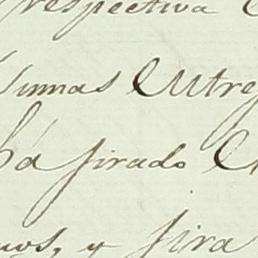 respectiva
sumas Entre
ha jirado
uos, y jira